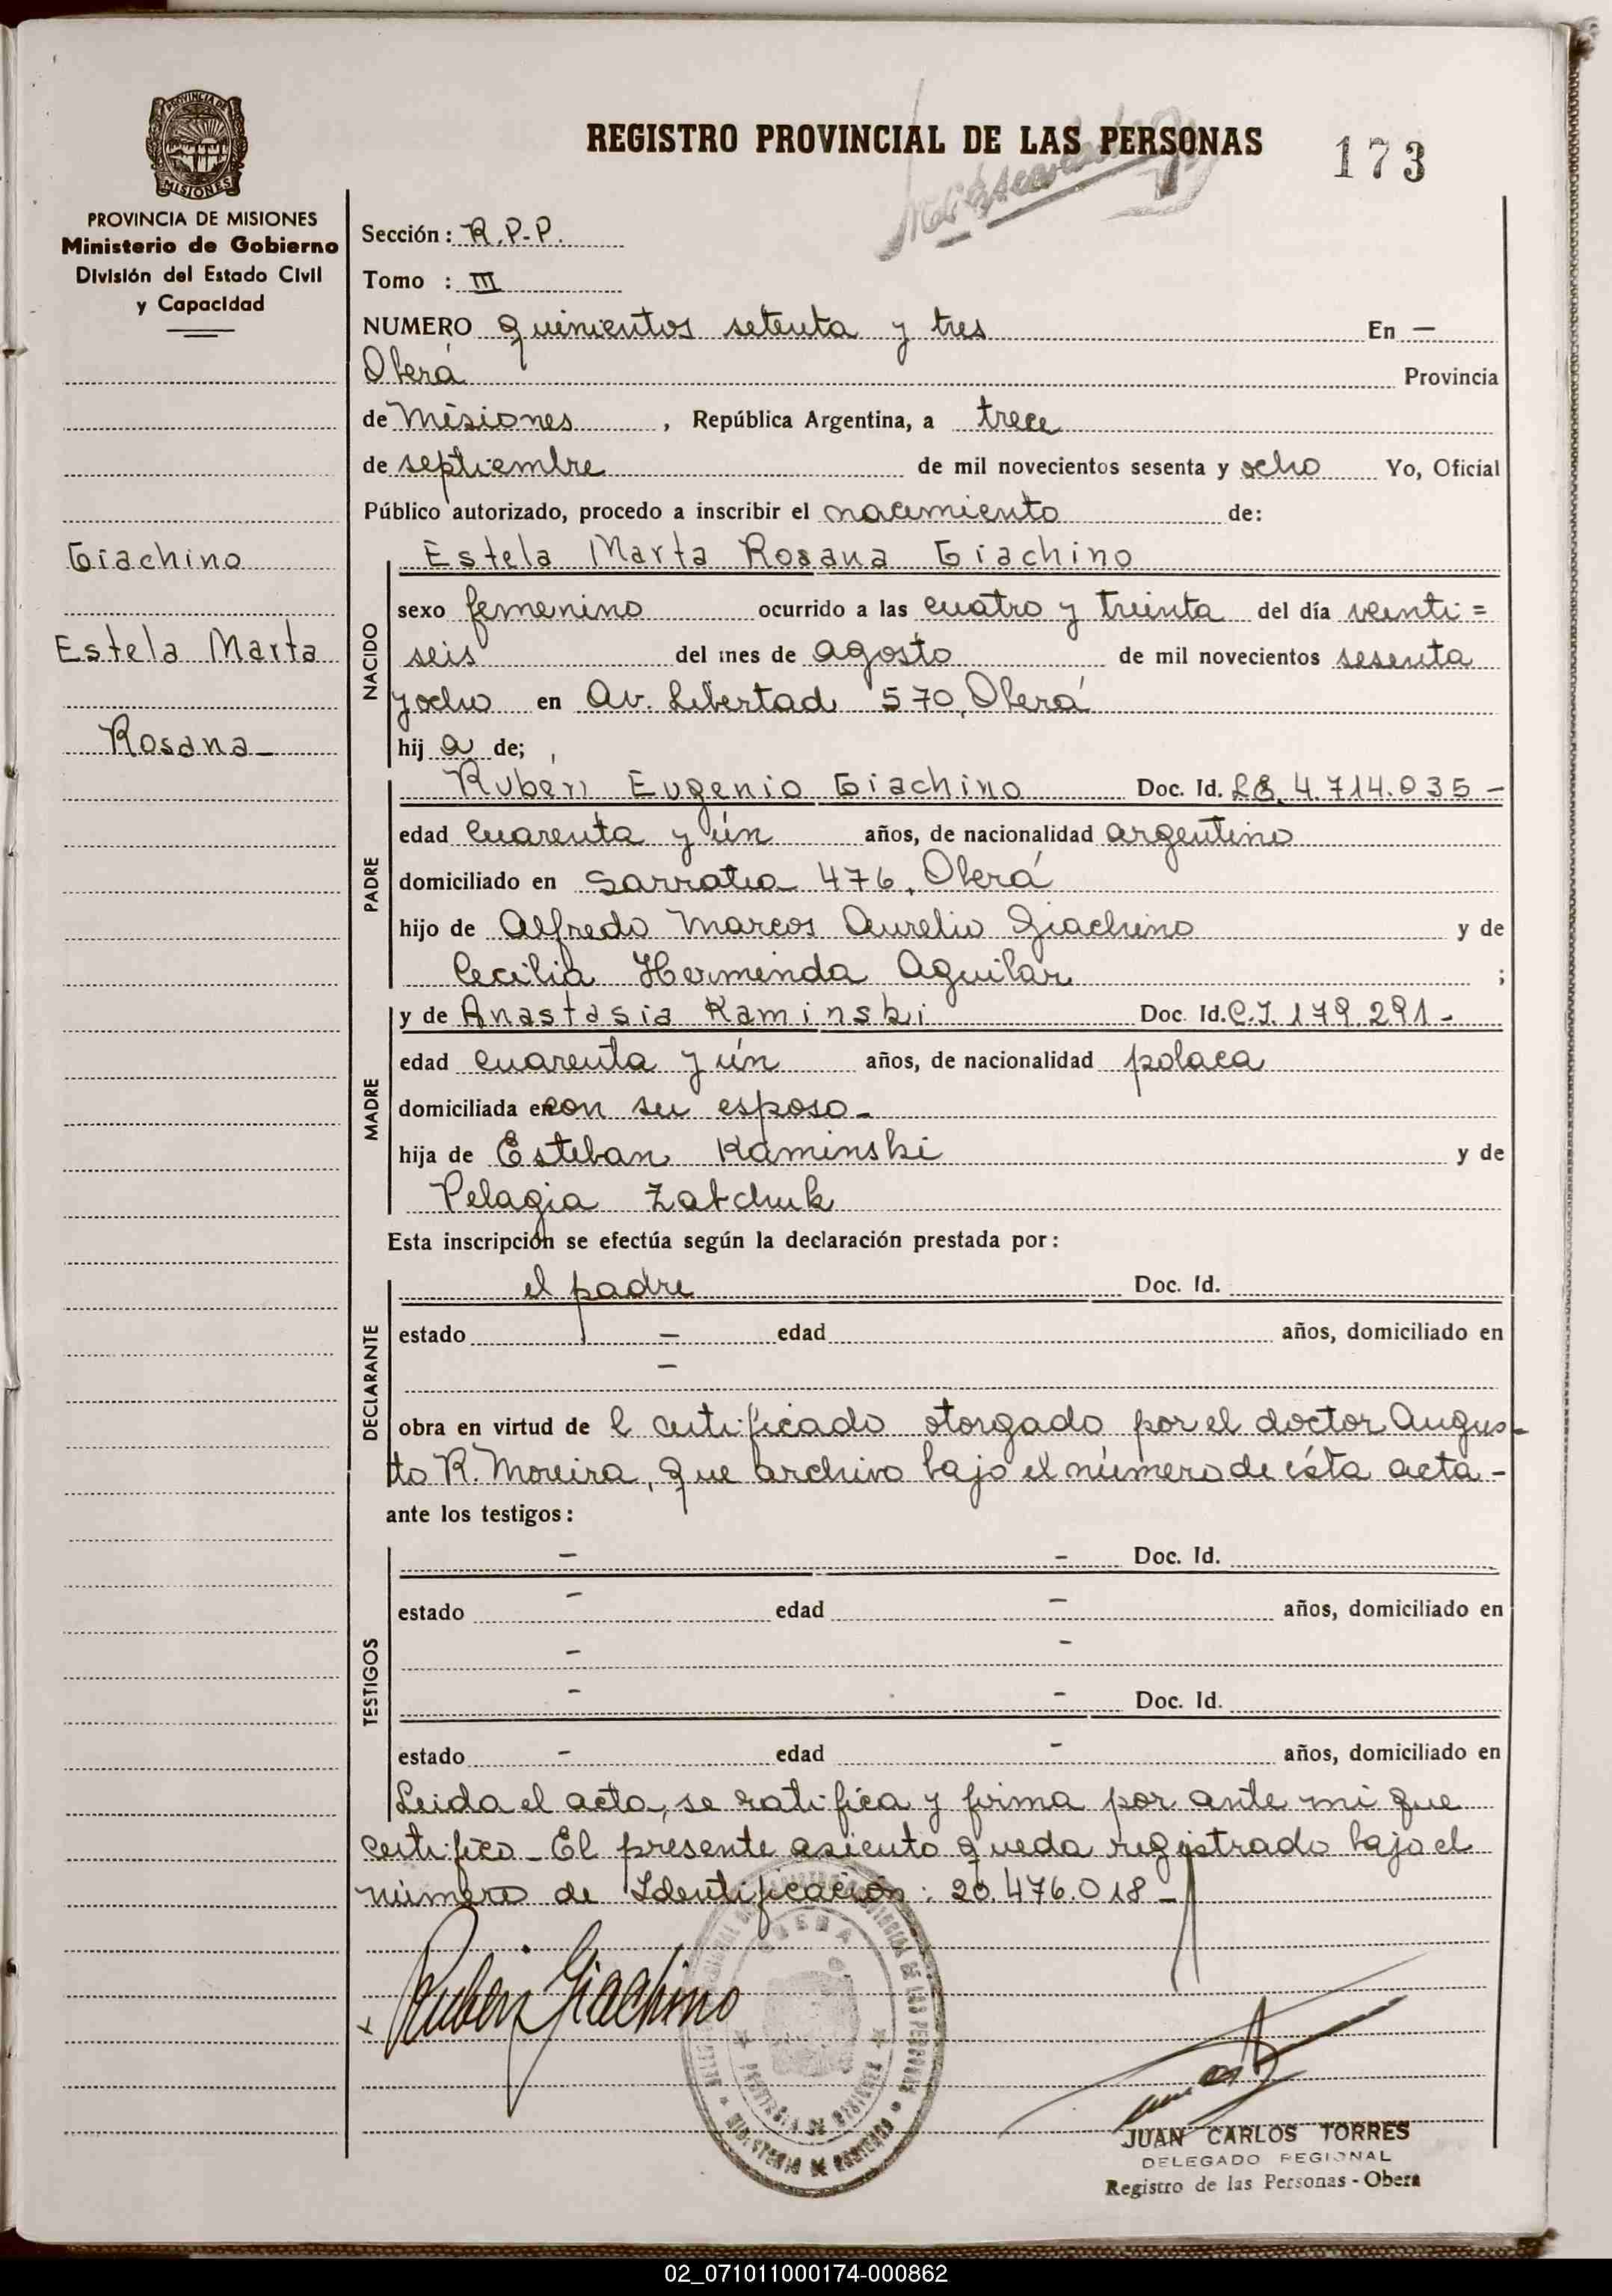 REGISTRO PROVINCIAL DE LAS PERSONAS
173
PROVINCIA DE
MISIONES
PROVINCIA DE MISIONES
Ministerio de Gobierno
División del Estado Civil
y Capacidad
Giachino
Estela Marta
Rosana
Sección: R.P.P.
Tomo : III
NUMERO quinientos setenta y tres En —
Oberá Provincia
de Misiones, República Argentina, a trece
de septiembre de mil novecientos sesenta y ocho Yo, Oficial
Público autorizado, procedo a inscribir el nacimiento de:
NACIDO
Estela Marta Rosana Giachino
sexo femenino ocurrido a las cuatro y treinta del día venti=
seis del mes de agosto de mil novecientos sesenta
y ocho en Av. Libertad 570, Oberá
hij a de;
PADRE
Rubén Eugenio Giachino Doc. Id. 4.714.035 -
edad cuarenta y ún años, de nacionalidad argentino
domiciliado en Sarratea 476, Oberá
hijo de Alfredo Marcos Aurelio Giachino y de
Cecilia Hermenda Aguilar ;
MADRE
y de Anastasia Kaminski Doc. Id. C.I. 179.291-
edad cuarenta y ún años, de nacionalidad polaca
domiciliada en con su esposo-
hija de Esteban Kaminski y de
Pelagia Zatchuk
Esta inscripción se efectúa según la declaración prestada por:
DECLARANTE
el padre Doc. Id.
estado — edad años, domiciliado en
—
obra en virtud de l certificado otorgado por el doctor Augus-
to R. Moreira, que archivo bajo el número de ésta acta -
ante los testigos:
TESTIGOS
— — Doc. Id.
estado — edad — años, domiciliado en
— —
— — Doc. Id.
estado — edad — años, domiciliado en
Leida el acta, se ratifica y firma por ante mi que
certifico - El presente asiento queda registrado bajo el
número de Identificación: 20.476.018 -
Ruben Giachino
OBERA
MINISTERIO DE GOBIERNO
JUAN CARLOS TORRES
DELEGADO REGIONAL
Registro de las Personas - Obera
02_071011000174-000862